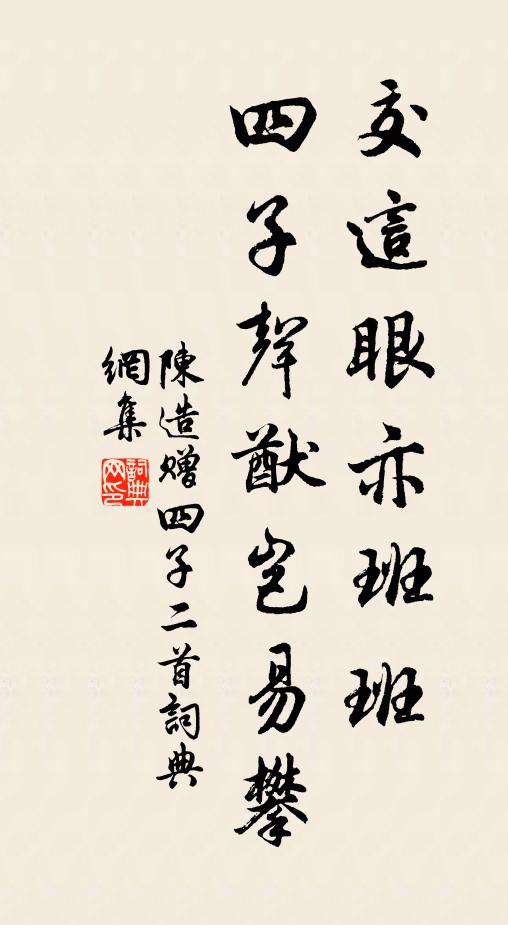 交這眼亦班班
四子聲猷豈易攀
陳造贈四子二首詞典
網集
詞典網印